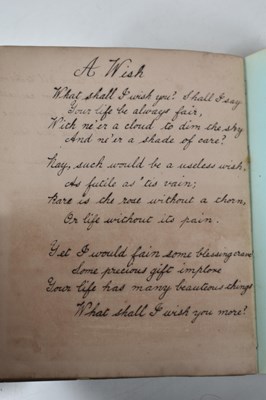 A Wish
What shall I wish you? Shall I say
Your life be always fair,
With ne'er a cloud to dim the sky
And ne'er a shade of care?
Nay, such would be a useless wish,
As futile as 'tis vain;
Rare is the rose without a thorn,
Or life without its pain.
Yet I would fain some blessing crave
Some precious gift implore
Your life has many beauteous things
What shall I wish you more!